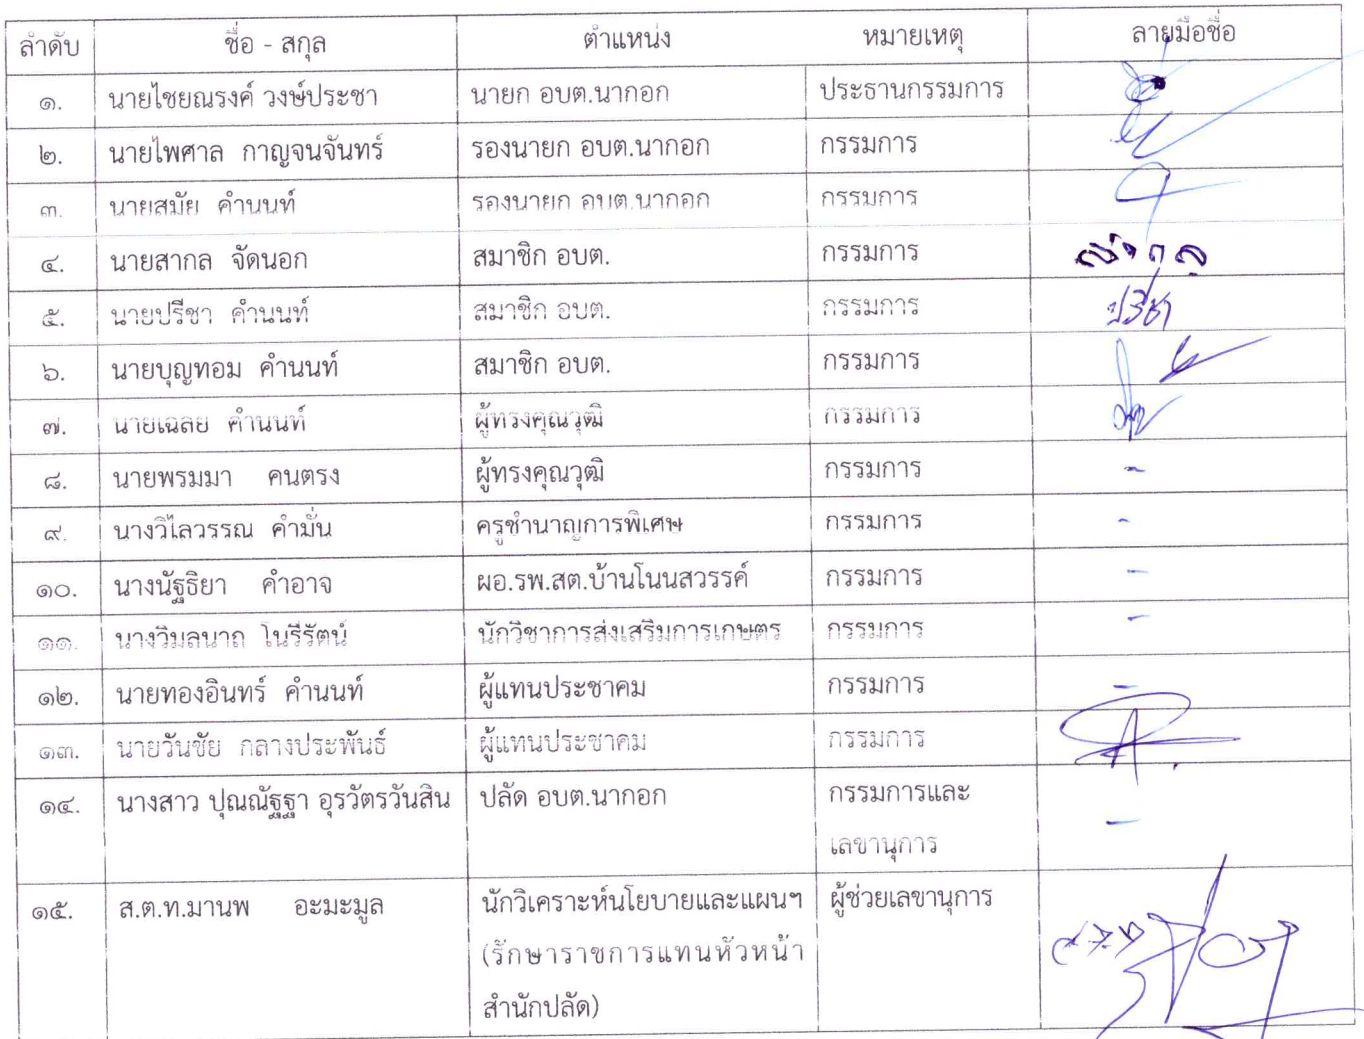 ลำดับ ชื่อ - สกุล ตำแหน่ง หมายเหตุ ลายมือชื่อ
๑. นายไชยณรงค์ วงษ์ประชา นายก อบต.นากอก ประธานกรรมการ
๒. นายไพศาล กาญจนจันทร์ รองนายก อบต.นากอก กรรมการ
๓. นายสมัย คำนนท์ รองนายก อบต.นากอก กรรมการ
๔. นายสากล จัดนอก สมาชิก อบต. กรรมการ สากล
๕. นายปรีชา คำนนท์ สมาชิก อบต. กรรมการ ปรีชา
๖. นายบุญทอม คำนนท์ สมาชิก อบต. กรรมการ
๗. นายเฉลย คำนนท์ ผู้ทรงคุณวุฒิ กรรมการ
๘. นายพรมมา คนตรง ผู้ทรงคุณวุฒิ กรรมการ -
๙. นางวิไลวรรณ คำมั่น ครูชำนาญการพิเศษ กรรมการ -
๑๐. นางนัฐธิยา คำอาจ ผอ.รพ.สต.บ้านโนนสวรรค์ กรรมการ -
๑๑. นางวิมลนาถ โนรีรัตน์ นักวิชาการส่งเสริมการเกษตร กรรมการ -
๑๒. นายทองอินทร์ คำนนท์ ผู้แทนประชาคม กรรมการ -
๑๓. นายวันชัย กลางประพันธ์ ผู้แทนประชาคม กรรมการ
๑๔. นางสาว ปุณณัฐฐา อุรวัตรวันสิน ปลัด อบต.นากอก กรรมการและ -
เลขานุการ
๑๕. ส.ต.ท.มานพ อะมะมูล นักวิเคราะห์นโยบายและแผนฯ ผู้ช่วยเลขานุการ
(รักษาราชการแทนหัวหน้า
สำนักปลัด)